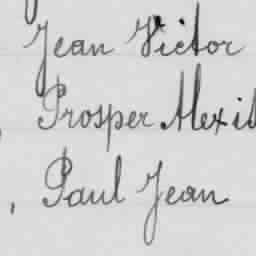 Jean Victor
, Prosper Alexi
, Paul Jean